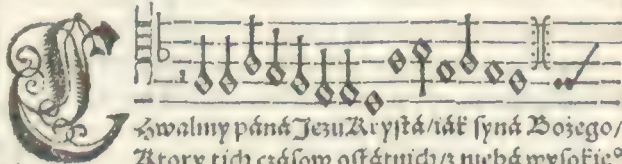 Chwalmy páná Jezu Krystá/iák syná Bożego/
Ktory tich czásow ostátnich/z niebá wysokie°